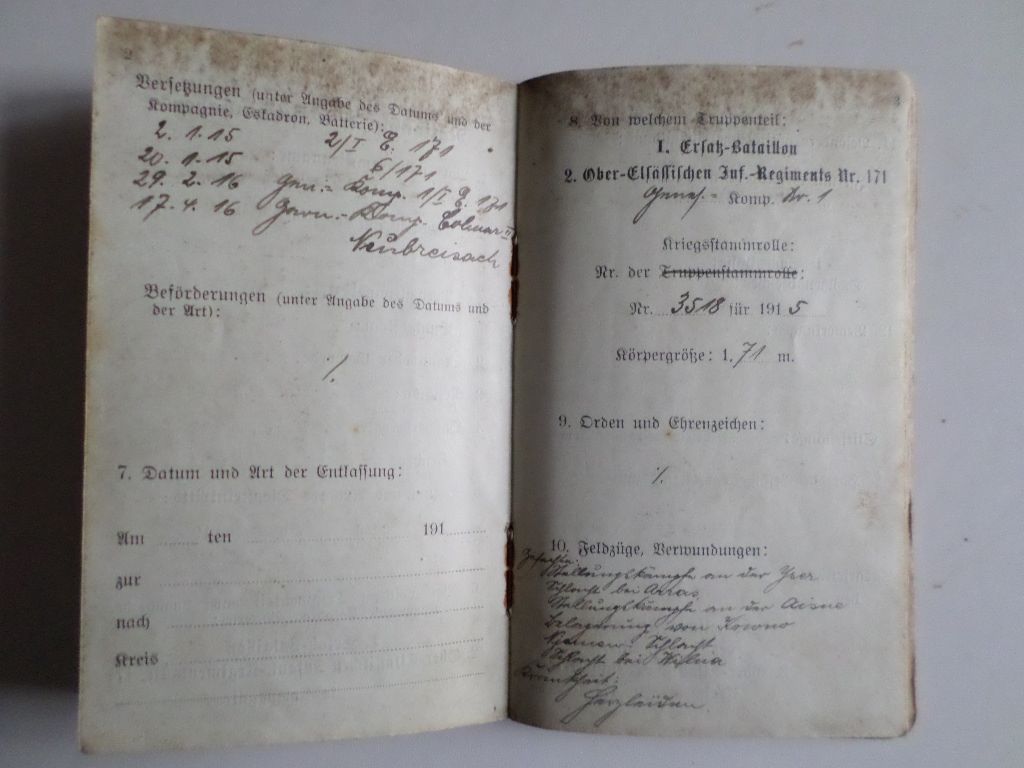 2
Versetzungen (unter Angabe des Datums und der
Kompagnie, Eskadron, Batterie):
2. 1. 15 2/I E. 171
20. 1. 15 6/171
29. 2. 16 Gen.-Komp. 1/I E. 171
17. 4. 16 Garn.-Komp. Colmar II
Neubreisach
Beförderungen (unter Angabe des Datums und
der Art):
7. Datum und Art der Entlassung:
Am ten 191
zur
nach
Kreis
3
8. Von welchem Truppenteil:
I. Ersatz-Bataillon
2. Ober-Elsässischen Inf.-Regiments Nr. 171
Genes.- Komp. Nr. 1
Kriegsstammrolle:
Nr. der Truppenstammrolle:
Nr. 3518 für 1915
Körpergröße: 1,71 m.
9. Orden und Ehrenzeichen:
10. Feldzüge, Verwundungen:
Gefechte:
Stellungskämpfe an der Yser
Schlacht bei Arras
Stellungskämpfe an der Aisne
Belagerung von Kowno
Njemen-Schlacht
Schlacht bei Wilna
Krankheit:
Herzleiden